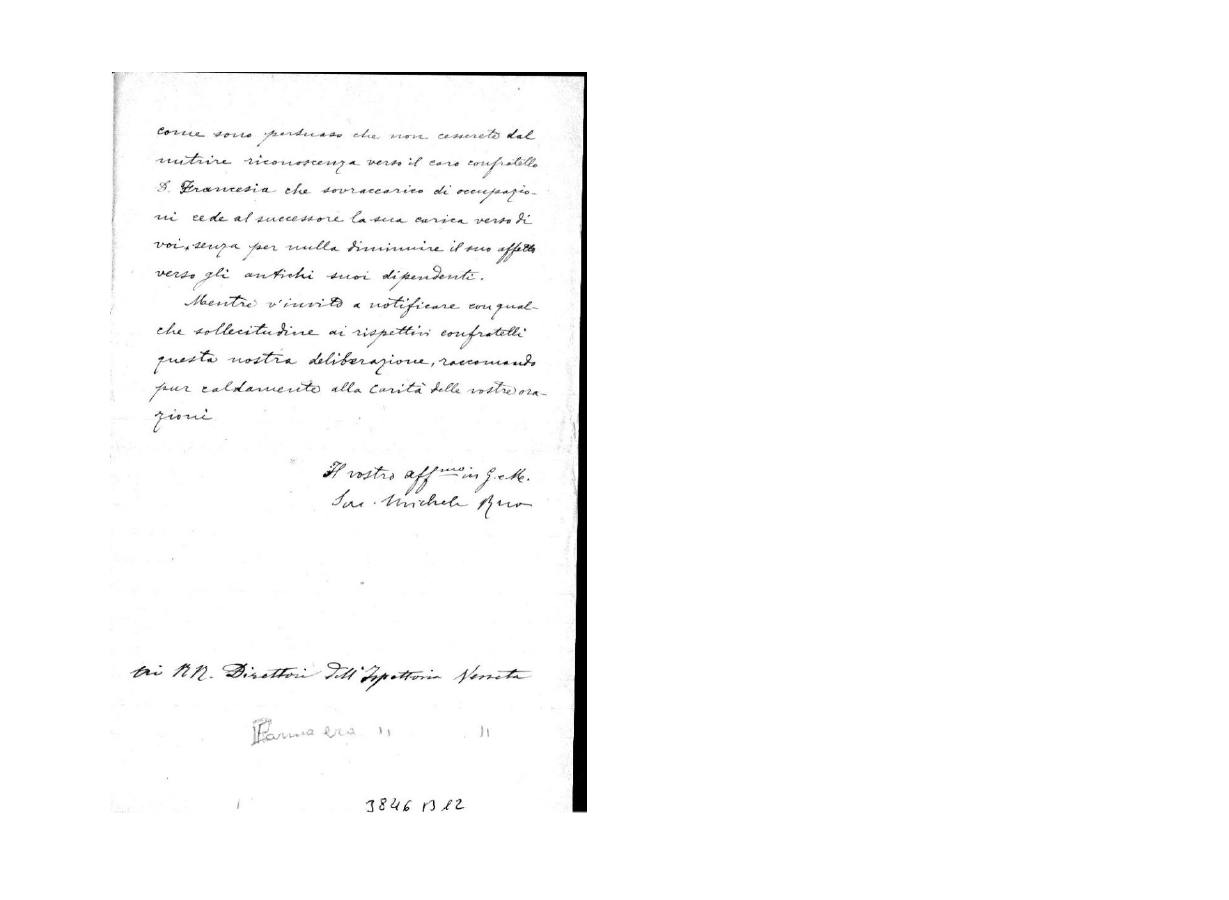 come sono persuaso che non cesserete dal
nutrire riconoscenza verso il caro confratello
D. Francesia che sovraccarico di occupazio-
ni cede al successore la sua carica verso di
voi, senza per nulla diminuire il suo affetto
verso gli antichi suoi dipendenti.
Mentre v'invito a notificare con qual-
che sollecitudine ai rispettivi confratelli
questa nostra deliberazione, raccomando
pur caldamente alla carità delle vostre ora-
zioni
Il vostro aff.mo in G. e M.
Sac. Michele Rua
Ai RR. Direttori dell'Ispettoria Veneta
Parma era " "
3846 B 12